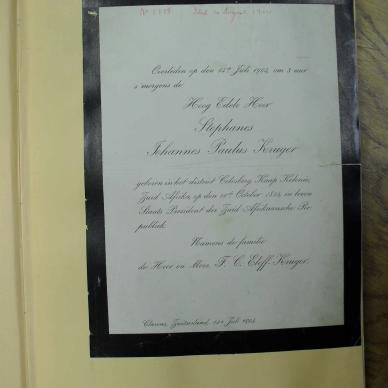 Overleden op den 14en Juli 1904 om 3 uur
s'morgens de
Hoog Edele Heer
Stephanes
Johannes Paulus Kruger
geboren in het district Colesberg Kaap Kolonie,
Zuid Afrika, op den 10en October 1825, in leven
Staats President der Zuid Afrikaansche Re-
publiek.
Namens de familie
de Heer en Mevr. F. C. Eloff-Kruger.
Clarens, Zwitserland, 14n Juli 1904.